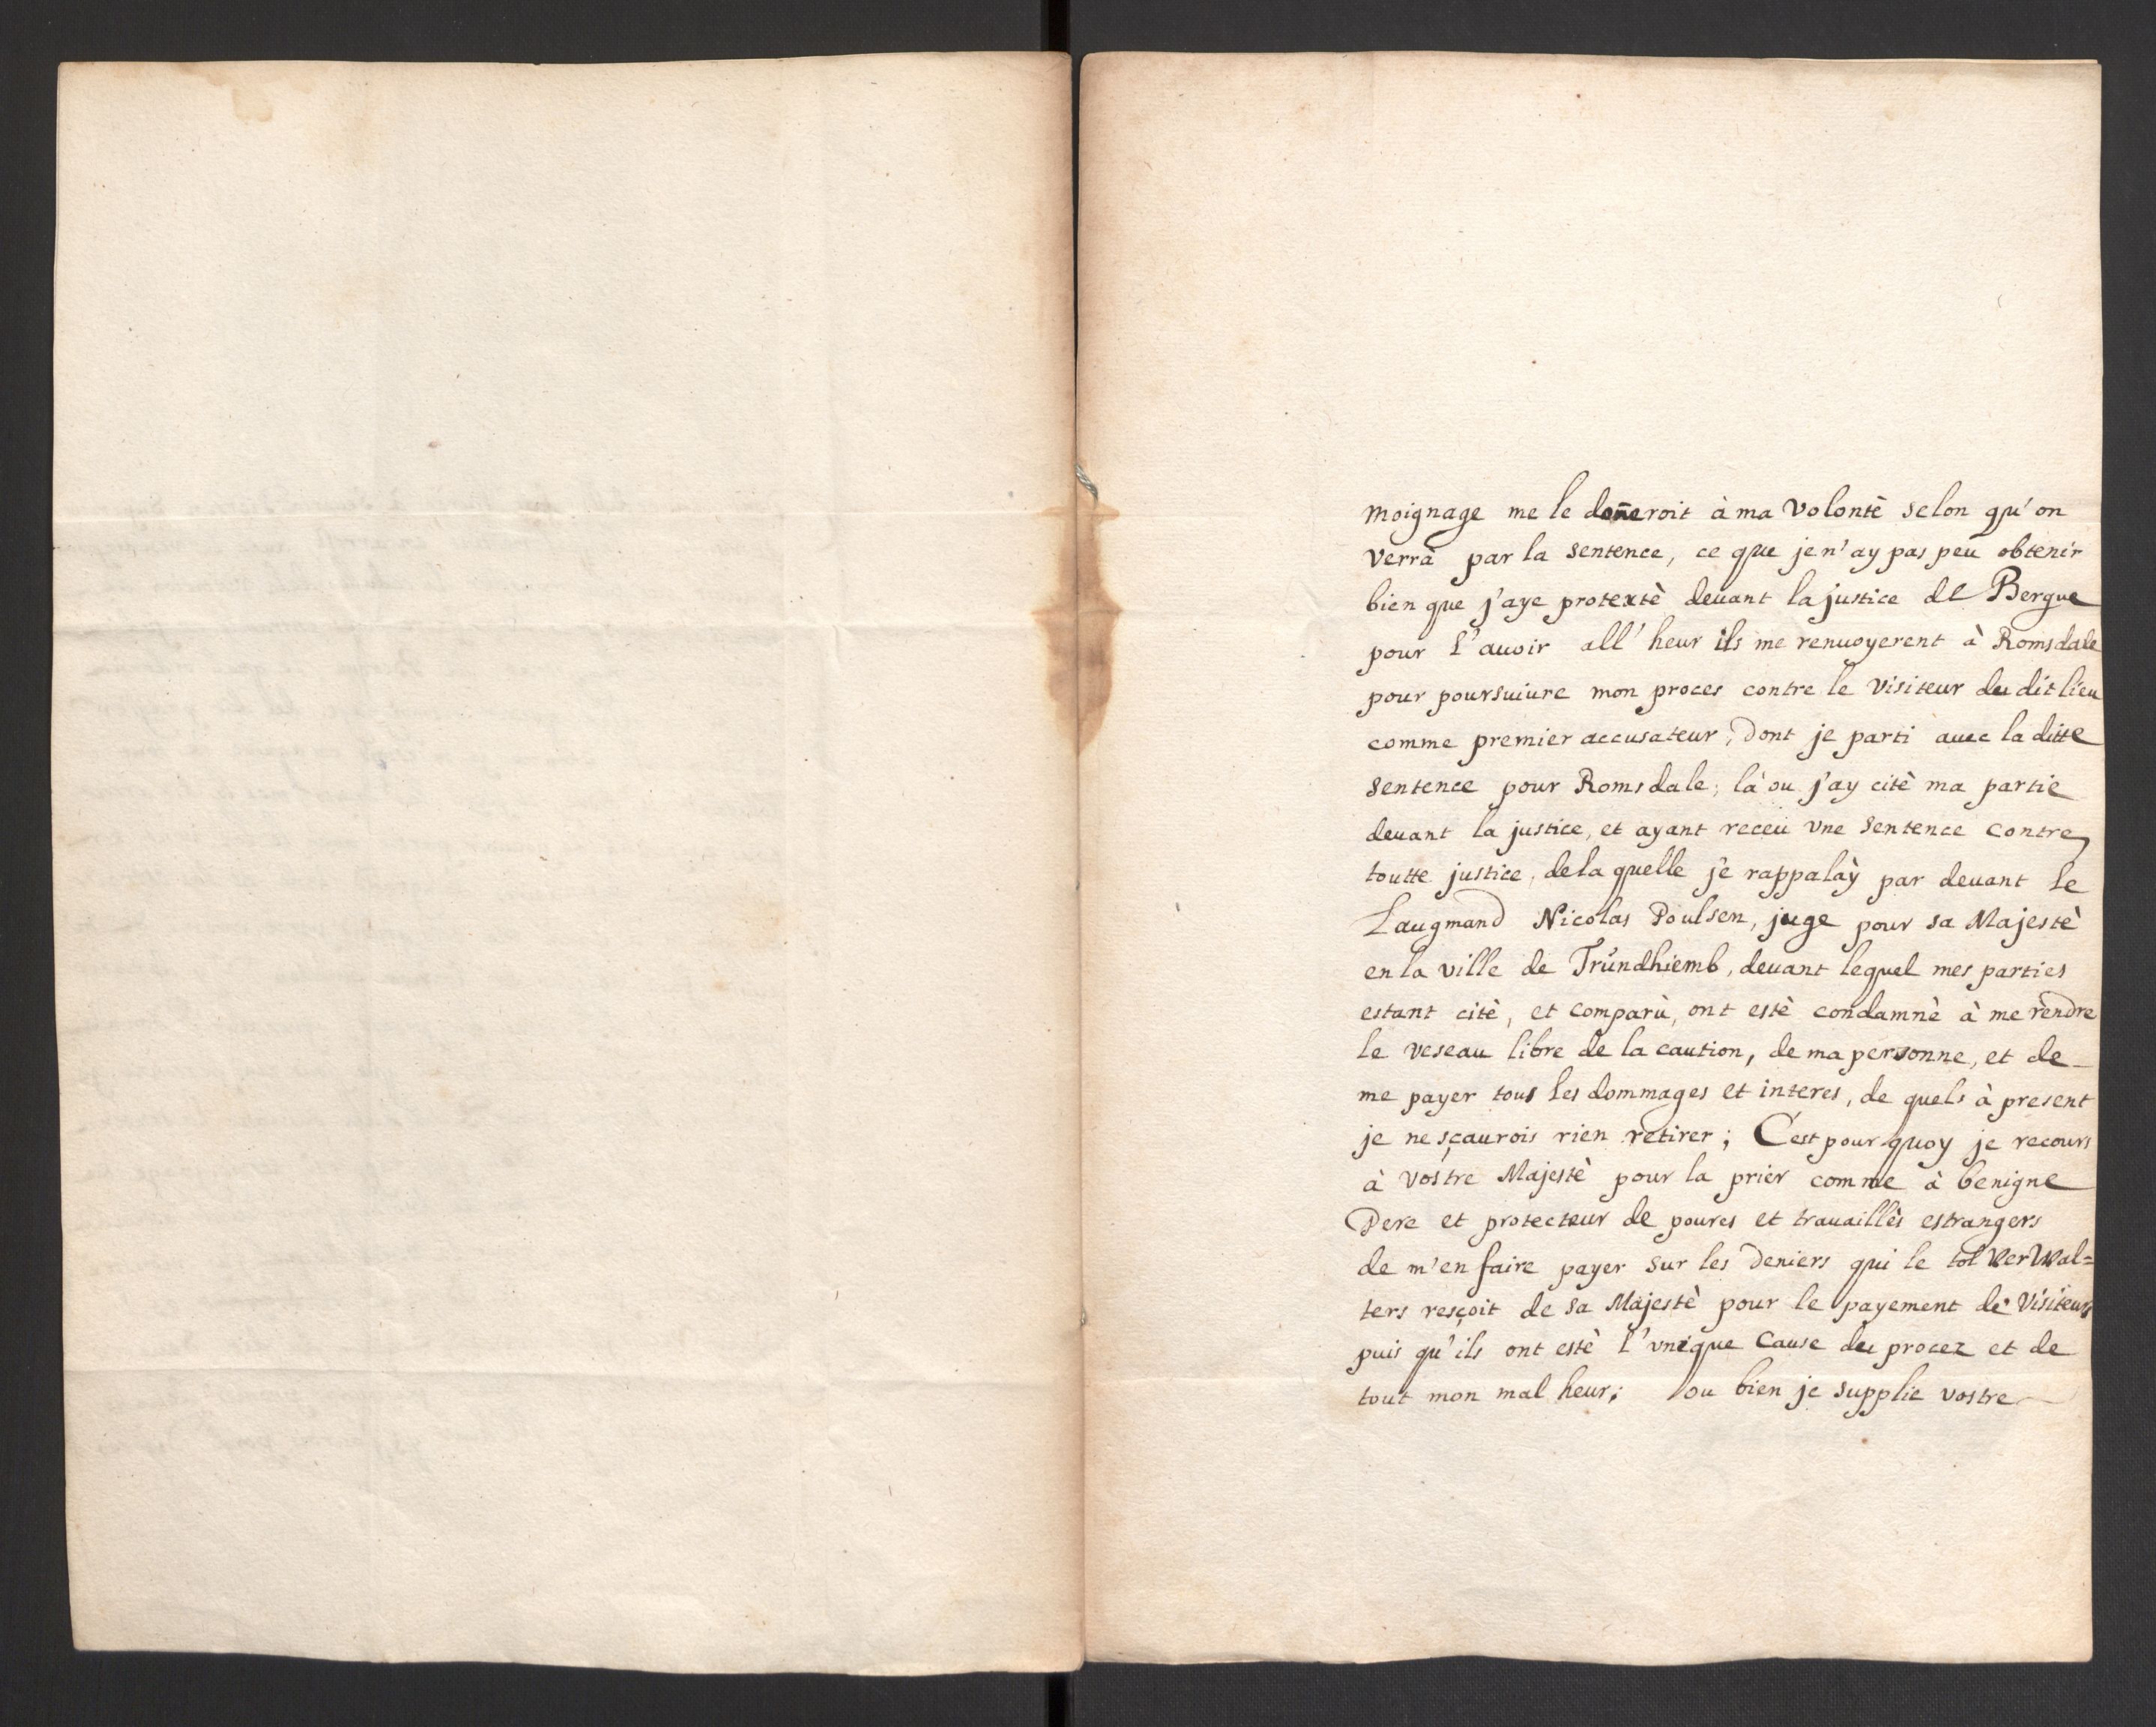 moignage me le doñeroit à ma volontè selon qu'on
verrà par la sentence, ce que je n'ay pas peu obtenir
bien que j'aye protextè deuant la justice de Bergue
pour l'auoir all' heur ils me renuoyerent à Romsdale
pour poursuiure mon proces contre le visiteur du dit lieu
comme premier accusateur, dont je parti auec la ditte
sentence pour Romsdale, là ou j'ay citè ma partie
deuant la justice, et ayant receu vne sentence contre
toutte justice, de la quelle je rappalày par deuant le
Laugmand Nicolas Poulsen, juge pour sa Majestè
en la ville de Trundhiemb, deuant lequel mes parties
estant citè, et comparù, ont estè condamnè à me rèndre
le veseau libre de la caution, de ma personne, et de
me payer tous les dommages et interes, de quels à present
je ne sçaurois rien retirer; C'est pour quoy je recours
à vostre Majestè pour la prier comme à benigne
Pere et protecteur de poures et trauaillès estrangers
de m'en faire payer sur les deniers qui le tol verwal=
ters resçoit de sa Majestè pour le payement de visiteurs
puis qu'ils ont estè l'vnique cause du procez et de
tout mon mal heur; ou bien je supplie vostre